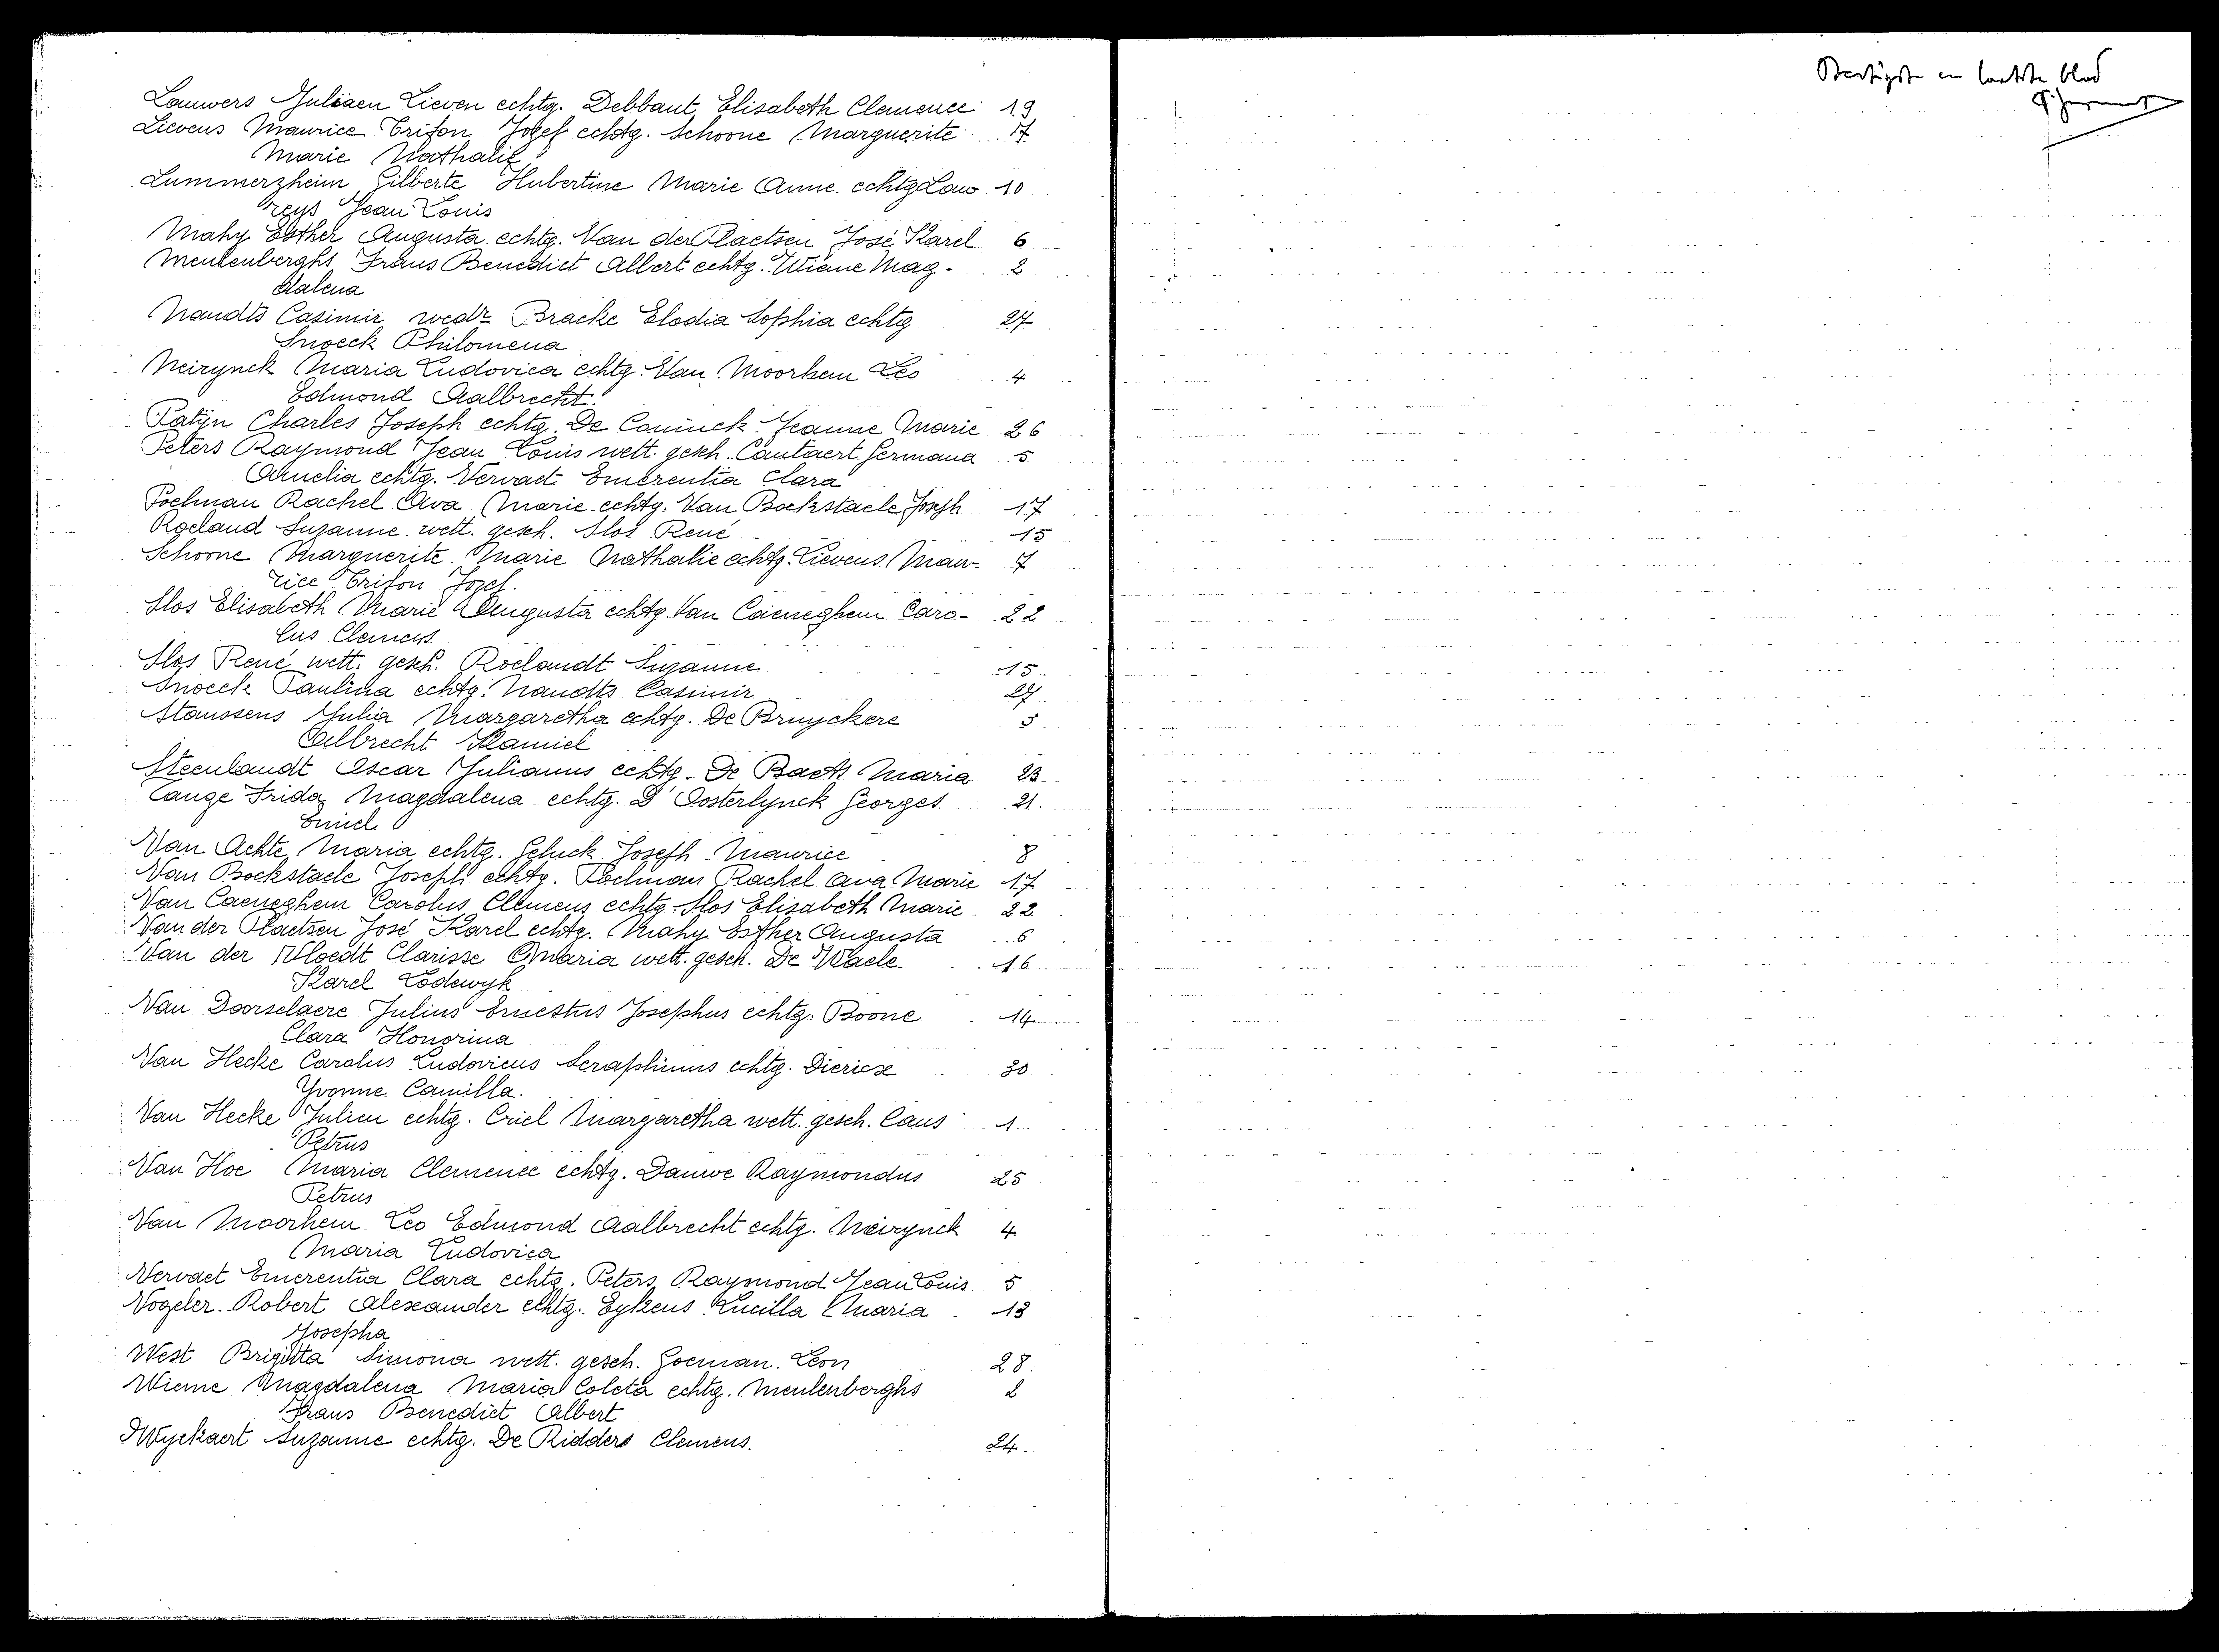 Lauwers Juliaen Lieven echtg. Debbaut Elisabeth Clemence 19
Lievens Maurice Trifon Jozef echtg. Schoone Marguerite 7
Marie Nathalie
Lummerzheim Gilberte Hubertine Marie Anne echtg Lau 10
reys Jean Louis
Mahy Esther Augusta echtg. Van der Plaetsen José Karel 6
Meulenberghs Frans Benedict Albert echtg. Wieme Mag- 2
dalena
Naudts Casimir wedr Bracke Elodia Sophia echtg 27
Snoeck Philomena
Neirynck Maria Ludovica echtg. Van Moorhem Leo 4
Edmond Aalbrecht.
Patijn Charles Joseph echtg. De Coninck Jeanne Marie 26
Peters Raymond Jean Louis wett. gesch. Cantaert Germana 5
Amelia echtg. Vervaet Emerentia Clara
Poelman Rachel Ava Marie echtg. Van Bockstaele Joseph 17
Roeland Suzanne wett. gesch. Slos René 15
Schoone Marguerite Marie Nathalie echtg. Lievens Mau- 7
rice Trifon Jozef.
Slos Elisabeth Marie Augusta echtg. Van Caeneghem Caro- 22
lus Clemens
Slos René wett. gesch. Roelandt Suzanne 15
Snoeck Paulina echtg. Naudts Casimir 27
Staussens Julia Margaretha echtg. De Bruyckere 3
Aalbrecht Kamiel
Steenlandt Oscar Julianus echtg. De Baets Maria 23
Tange Frida Magdalena echtg. D'Oosterlynck Georges 21.
Emiel
Van Achte Maria echtg. Geluck Joseph Maurice 8
Van Bockstaele Joseph echtg. Poelman Rachel Ava Marie 17
Van Caeneghem Carolus Clemens echtg. Slos Elisabeth Marie 22
Van der Plaetsen José Karel echtg. Mahy Esther Augusta 6
Van der Vloedt Clarisse Maria wett. gesch. De Waele 16
Karel Lodewyk
Van Doorselaere Julius Ernestus Josephus echtg. Boone 14
Clara Honorina
Van Hecke Carolus Ludovicus Seraphinus echtg. Dierickx 30
Yvonne Camilla.
Van Hecke Julien echtg. Criel Margaretha wett. gesch. Caus 1
Petrus
Van Hoe Maria Clemence echtg. Dauwe Raymondus 25
Petrus
Van Moorhem Leo Edmond Aalbrecht echtg. Neirynck 4
Maria Ludovica
Vervaet Emerentia Clara echtg. Peters Raymond Jean Louis 5
Vogeler Robert Alexander echtg. Eykens Lucilla Maria 13
Josepha
West Brigitta Simona wett. gesch. Goeman Leon 28
Wieme Magdalena Maria Coleta echtg. Meulenberghs 2
Frans Benedict Albert
Wyckaert Suzanne echtg. De Ridders Clemens. 24.
Dertigste en laatste blad